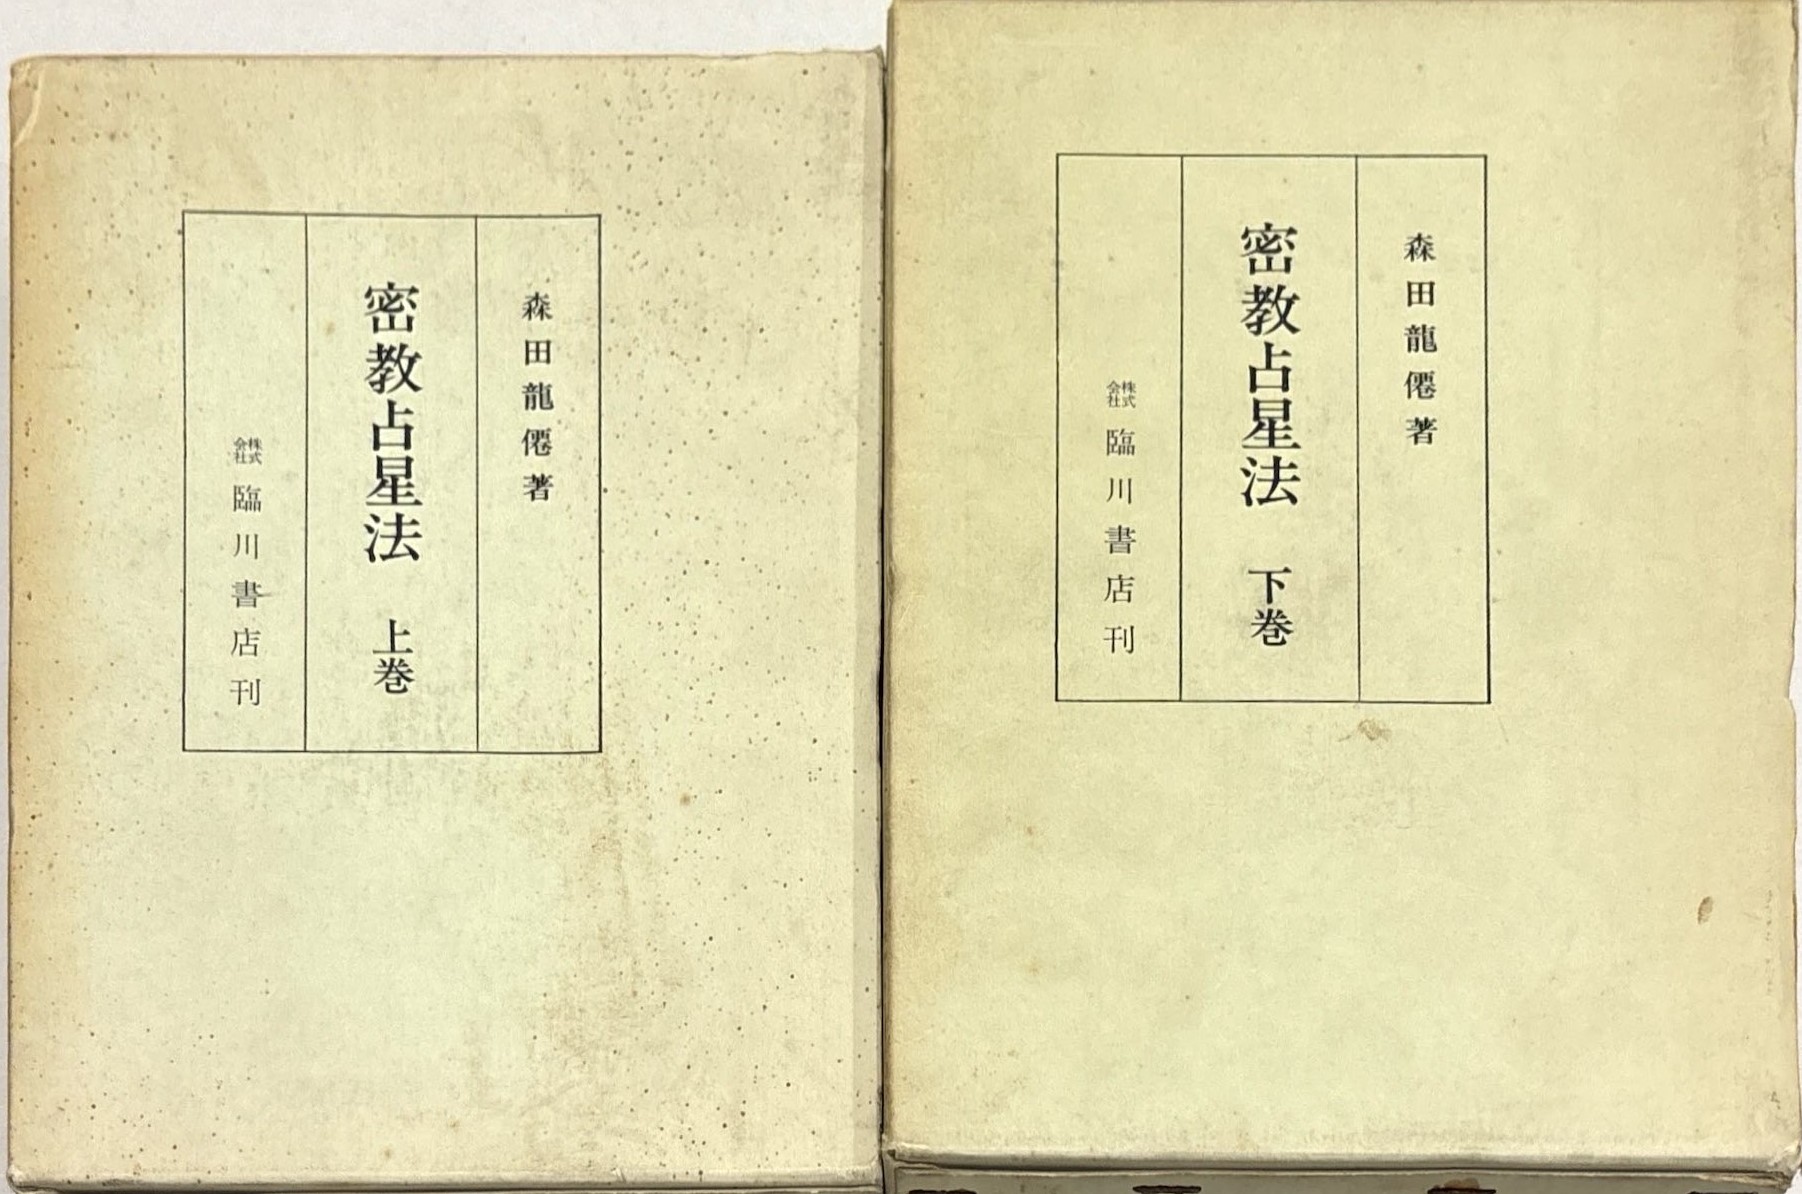 森田龍僊著
密教占星法 上巻
株式会社 臨川書店刊
森田龍僊著
密教占星法 下巻
株式会社 臨川書店刊